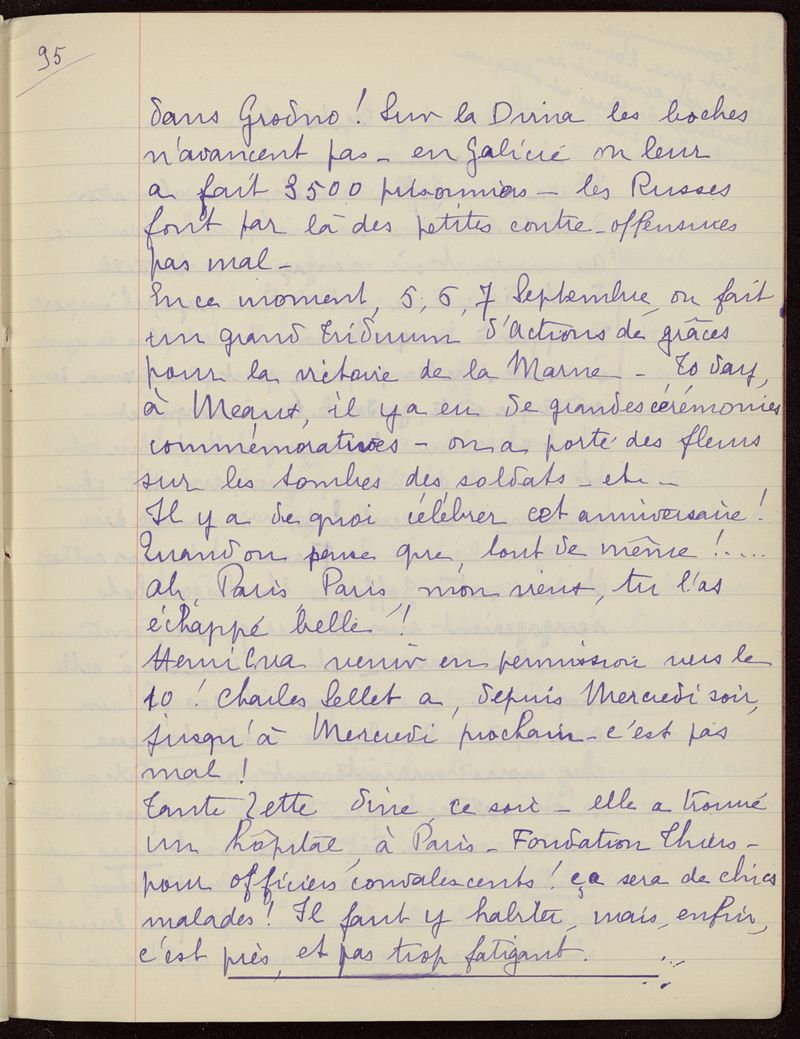 95
dans Grodno ! Sur la Dvina les boches
n'avancent pas _ en Galicie on leur
a fait 3500 prisonniers _ les Russes
font par là des petites contre-offensives
pas mal _
En ce moment, 5, 6, 7 Septembre, on fait
un grand triduum d'actions de grâces
pour la victoire de la Marne _ To day,
à Meaux, il y a eu de grandes cérémonies
commémoratives _ on a porté des fleurs
sur les tombes des soldats _ etc _
Il y a de quoi célébrer cet anniversaire !
Quand on pense que, tout de même !....
ah, Paris, Paris, mon vieux, tu l'as
échappé belle !
Henri va venir en permission vers le
10 ! Charles Sellet a, depuis Mercredi soir,
jusqu'à Mercredi prochain _ c'est pas
mal !
Tante Zette dîne, ce soir _ elle a trouvé
un hôpital, à Paris _ Fondation Thiers _
pour officiers convalescents ! ça sera de chics
malades ! Il faut y habiter, mais, enfin,
c'est près, et pas trop fatigant.